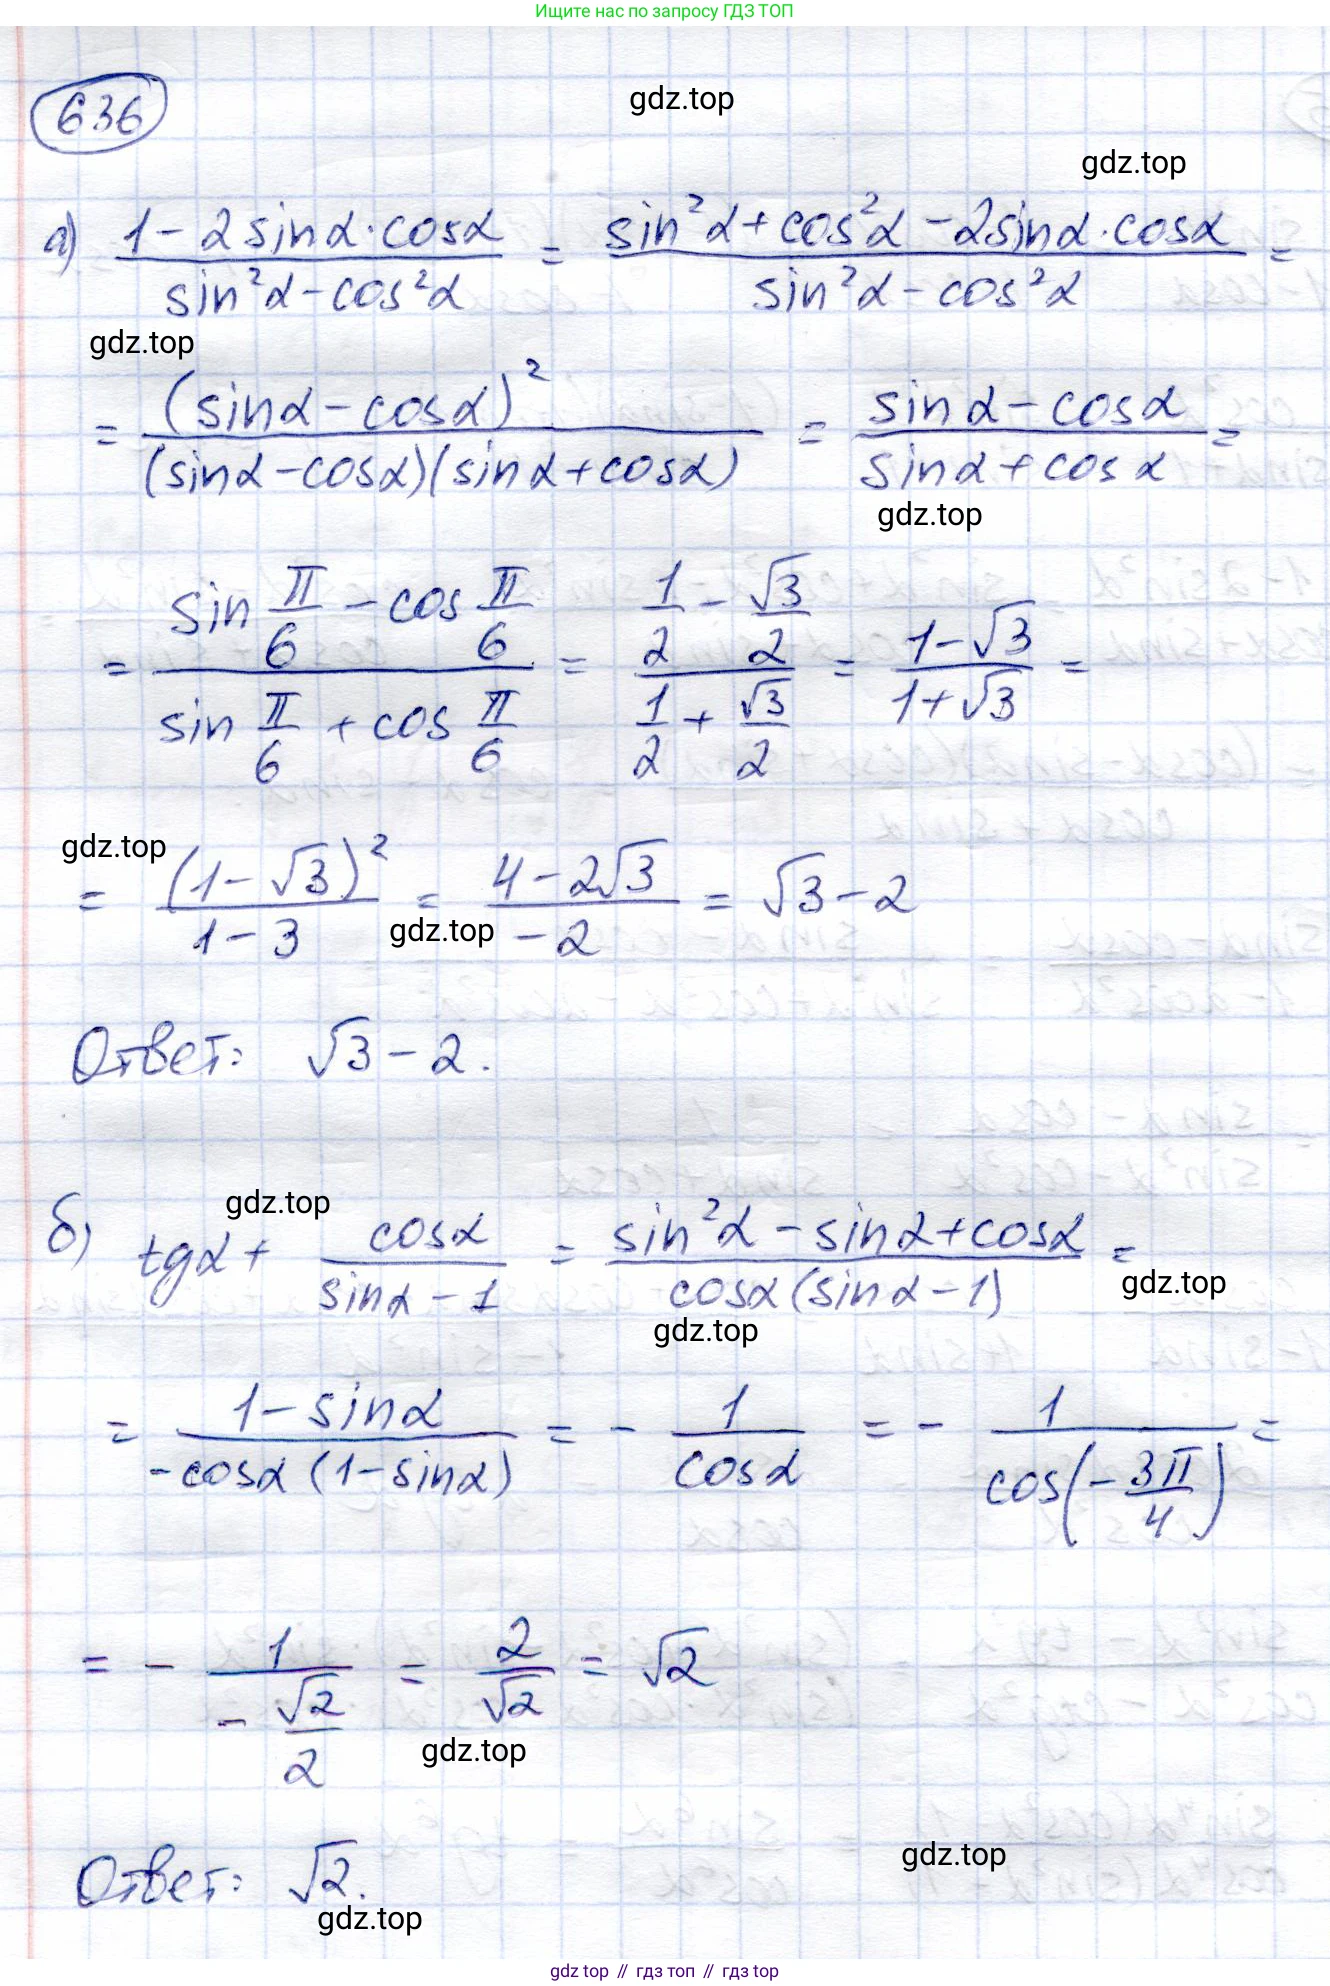 Ищите нас по запросу ГДЗ ТОП
636
gdz.top
gdz.top
а) (1 - 2 sinα · cosα)/(sin²α - cos²α) = (sin²α + cos²α - 2sinα · cosα)/(sin²α - cos²α) =
gdz.top
= (sinα - cosα)²/((sinα - cosα)(sinα + cosα)) = (sinα - cosα)/(sinα + cosα) =
gdz.top
= (sin π/6 - cos π/6)/(sin π/6 + cos π/6) = (1/2 - √3/2)/(1/2 + √3/2) = (1 - √3)/(1 + √3) =
gdz.top
= (1 - √3)²/(1 - 3) = (4 - 2√3)/(-2) = √3 - 2
gdz.top
Ответ: √3 - 2.
gdz.top
б) tgα + cosα/(sinα - 1) = (sin²α - sinα + cosα)/(cosα (sinα - 1)) =
gdz.top
gdz.top
= (1 - sinα)/(-cosα (1 - sinα)) = - 1/cosα = - 1/cos(-3π/4) =
= - 1/(-√2/2) = 2/√2 = √2
gdz.top
gdz.top
Ответ: √2.
gdz.top
gdz top // гдз топ // гдз top